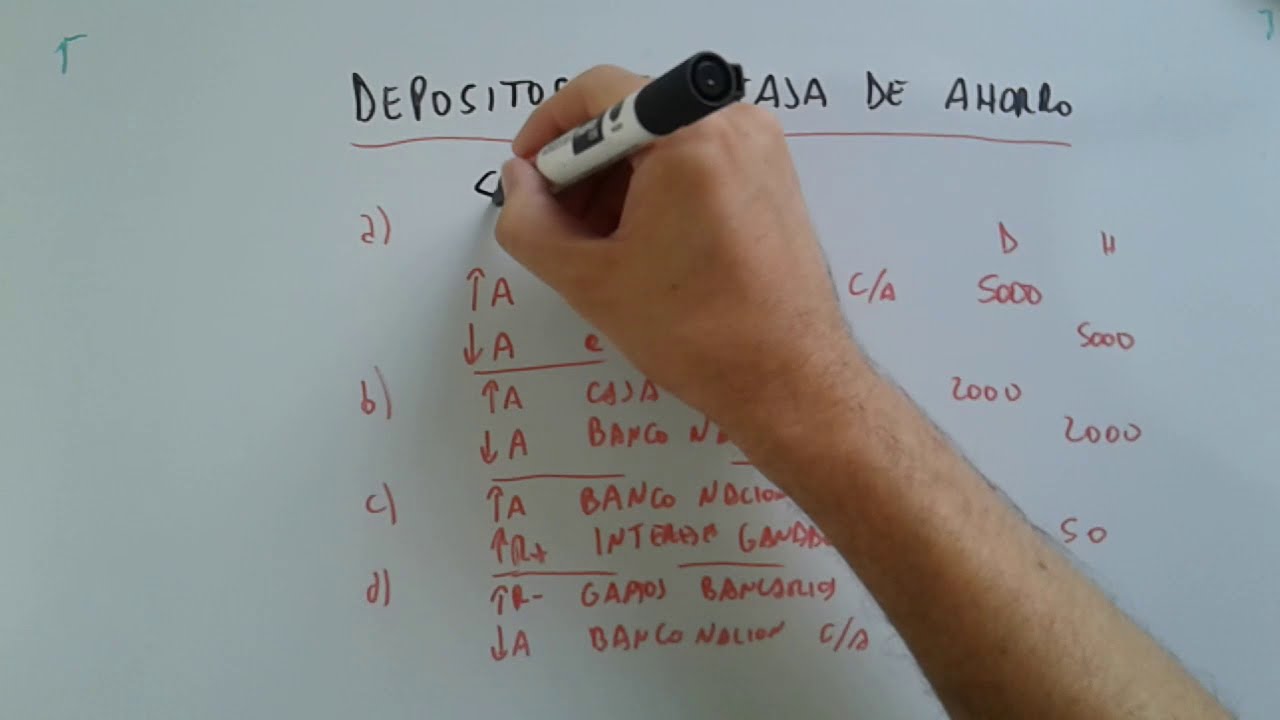 DEPOSITOS AJA DE AHORRO
a)
D H
↑A C/A 5000
↓A 5000
b) ↑A CAJA 2000
↓A BANCO NA 2000
c) ↑A BANCO NACION
↑R+ INTERESES GANADO 50
d) ↑R- GASTOS BANCARIOS
↓A BANCO NACION C/A